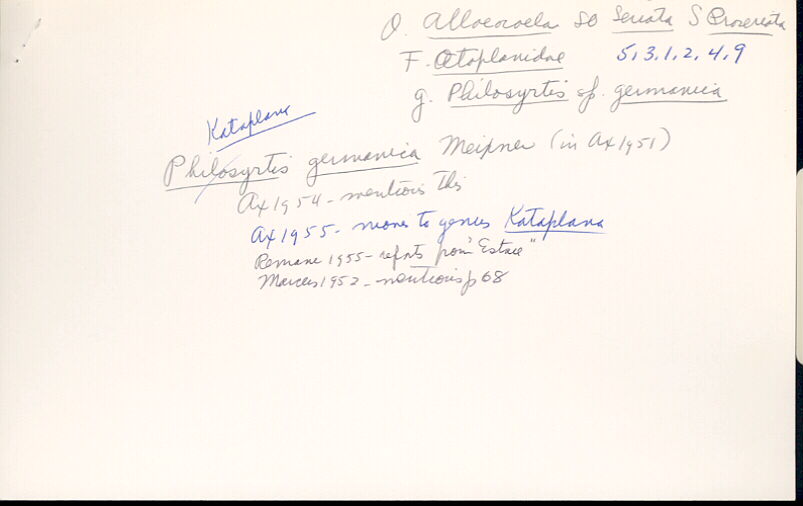 O. Alloeocoela SO Seriata S Proseriata
F. Otoplanidae 5,3,1,2,4,9
g. Philosyrtis sp. germanica
Kataplana
Philosyrtis germanica Meixner (in Ax 1951)
Ax 1954 - mentions this
Ax 1955 - moves to genus Kataplana
Remane 1955 - reports from "Estace"
Marcus 1952 - mentions p 68